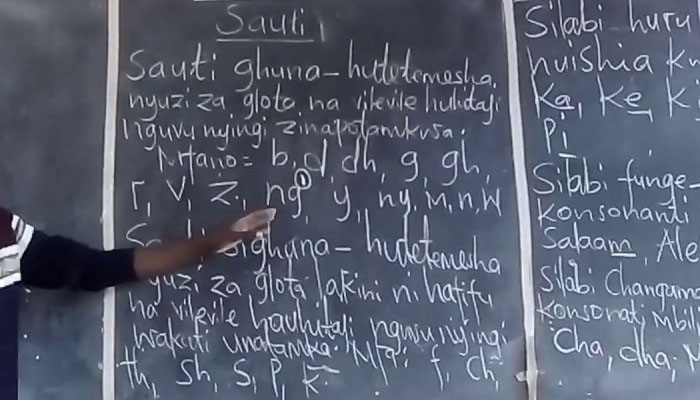 Sauti
Sauti ghuna - hutetemesha
nyuzi za glota na vilevile huhitaji
nguvu nyingi zinapotamkwa.
Mfano = b, d dh, g, gh,
r, v, z, ng', y, ny, m, n, w
Sauti sighuna - hudetemesha
nyuzi za glota lakini ni hafifu
na vilevile hauhitaji nguvu nyingi
wakati unatamka. Mfa: f, Ch,
th, Sh, S, P, K
Silabi huru
huishia kw
Ka, Ke, K
Pi
Silabi funge -
konsonanti
Salaam, Ale
Silabi Changama
Konsonati mbili
Cha, dha,